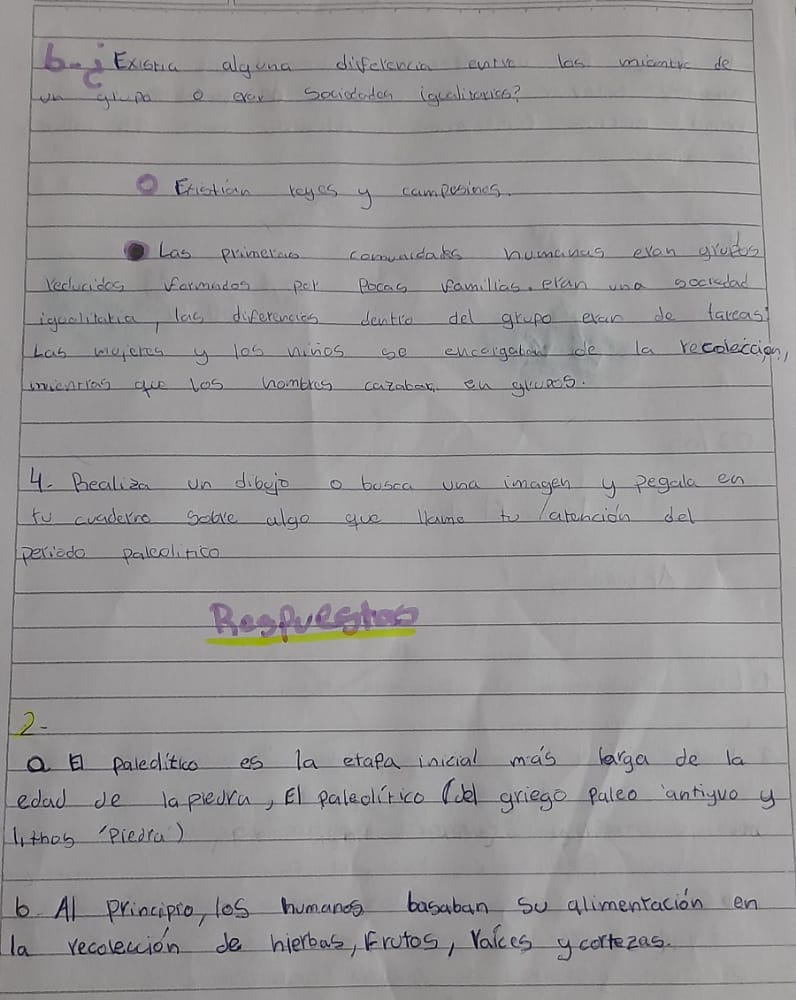 b-¿Existia alguna diferencia entre los miembre de
un grupo o eran sociedades igualitarias?
Existian reyes y campesinos.
Las primeras comunidades humanas eran grupos
reducidos formados por pocas familias. eran una sociedad
igualitaria, las diferencias dentro del grupo eran de tareas:
Las mujeres y los niños se encargaban de la recolección,
mientras que los hombres cazaban en grupos.
4- Realiza un dibujo o busca una imagen y pegala en
tu cuaderno sobre algo que llame tu atención del
periodo paleolitico
Respuestas
2-
a El paleolítico es la etapa inicial más larga de la
edad de la piedra, El paleolítico (del griego paleo 'antiguo y
lithos 'piedra)
b- Al principio, los humanos basaban su alimentación en
la recolección de hierbas, Frutos, raíces y cortezas.